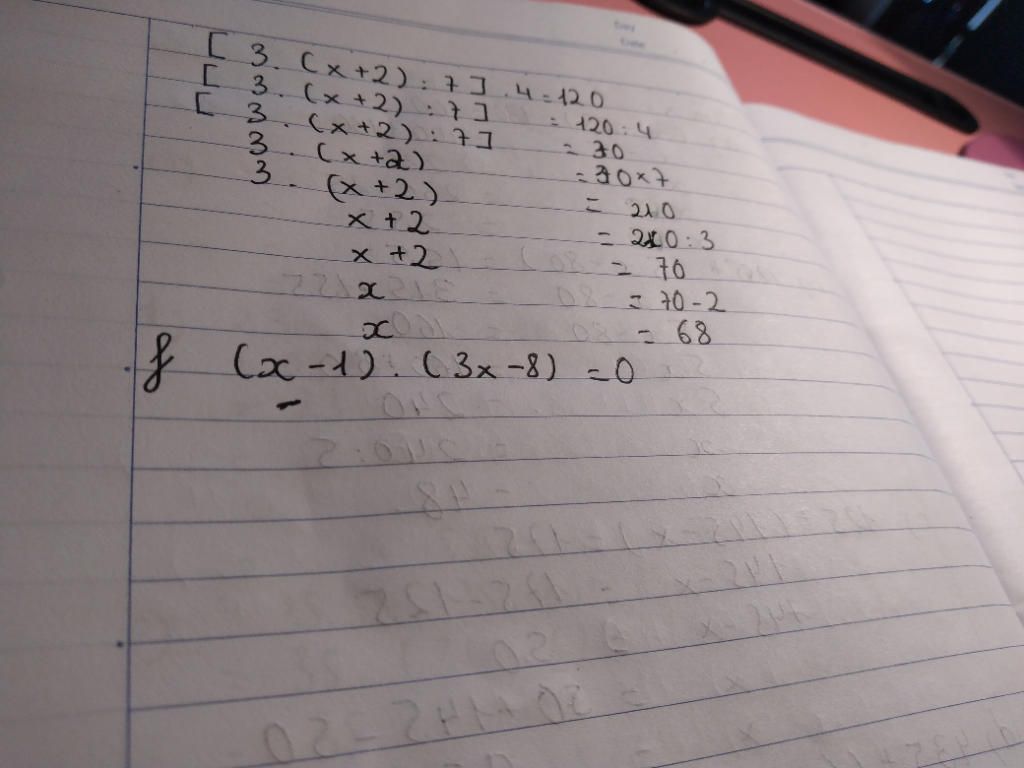 Day
Date
[ 3 . (x+2) : 7 ] . 4 = 120
[ 3 . (x+2) : 7 ] = 120 : 4
[ 3 . (x+2) : 7 ] = 30
3 . (x+2) = 30 × 7
3 . (x+2) = 210
x + 2 = 210 : 3
x + 2 = 70
x = 70 - 2
x = 68
f (x - 1) . (3x - 8) = 0